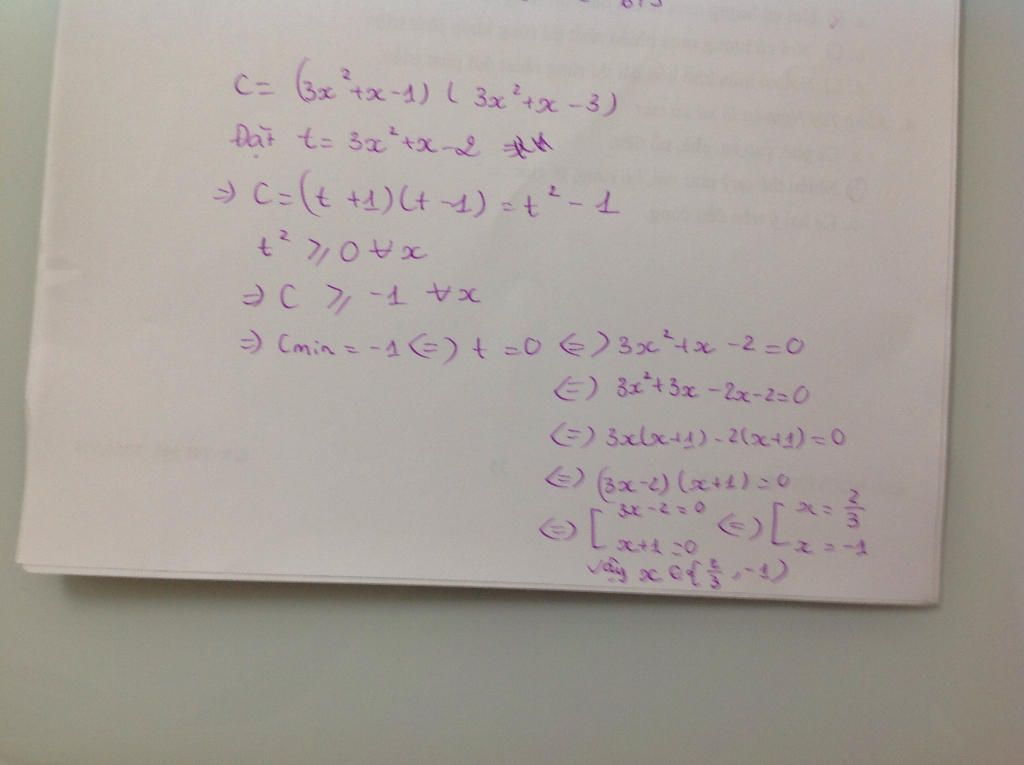 C = (3x²+x-1) ( 3x²+x-3)
Đặt t = 3x²+x-2
=> C=(t+1)(t-1)=t²-1
t² ⩾ 0 ∀x
=> C ⩾ -1 ∀x
=> Cmin = -1 (=) t = 0 (=) 3x²+x-2=0
(=) 3x²+3x-2x-2=0
(=) 3x(x+1)-2(x+1)=0
(=) (3x-2)(x+1)=0
(=) [ 3x-2=0 (=) [ x = 2/3
x+1=0 x = -1
Vậy x ∈ { 2/3, -1 }